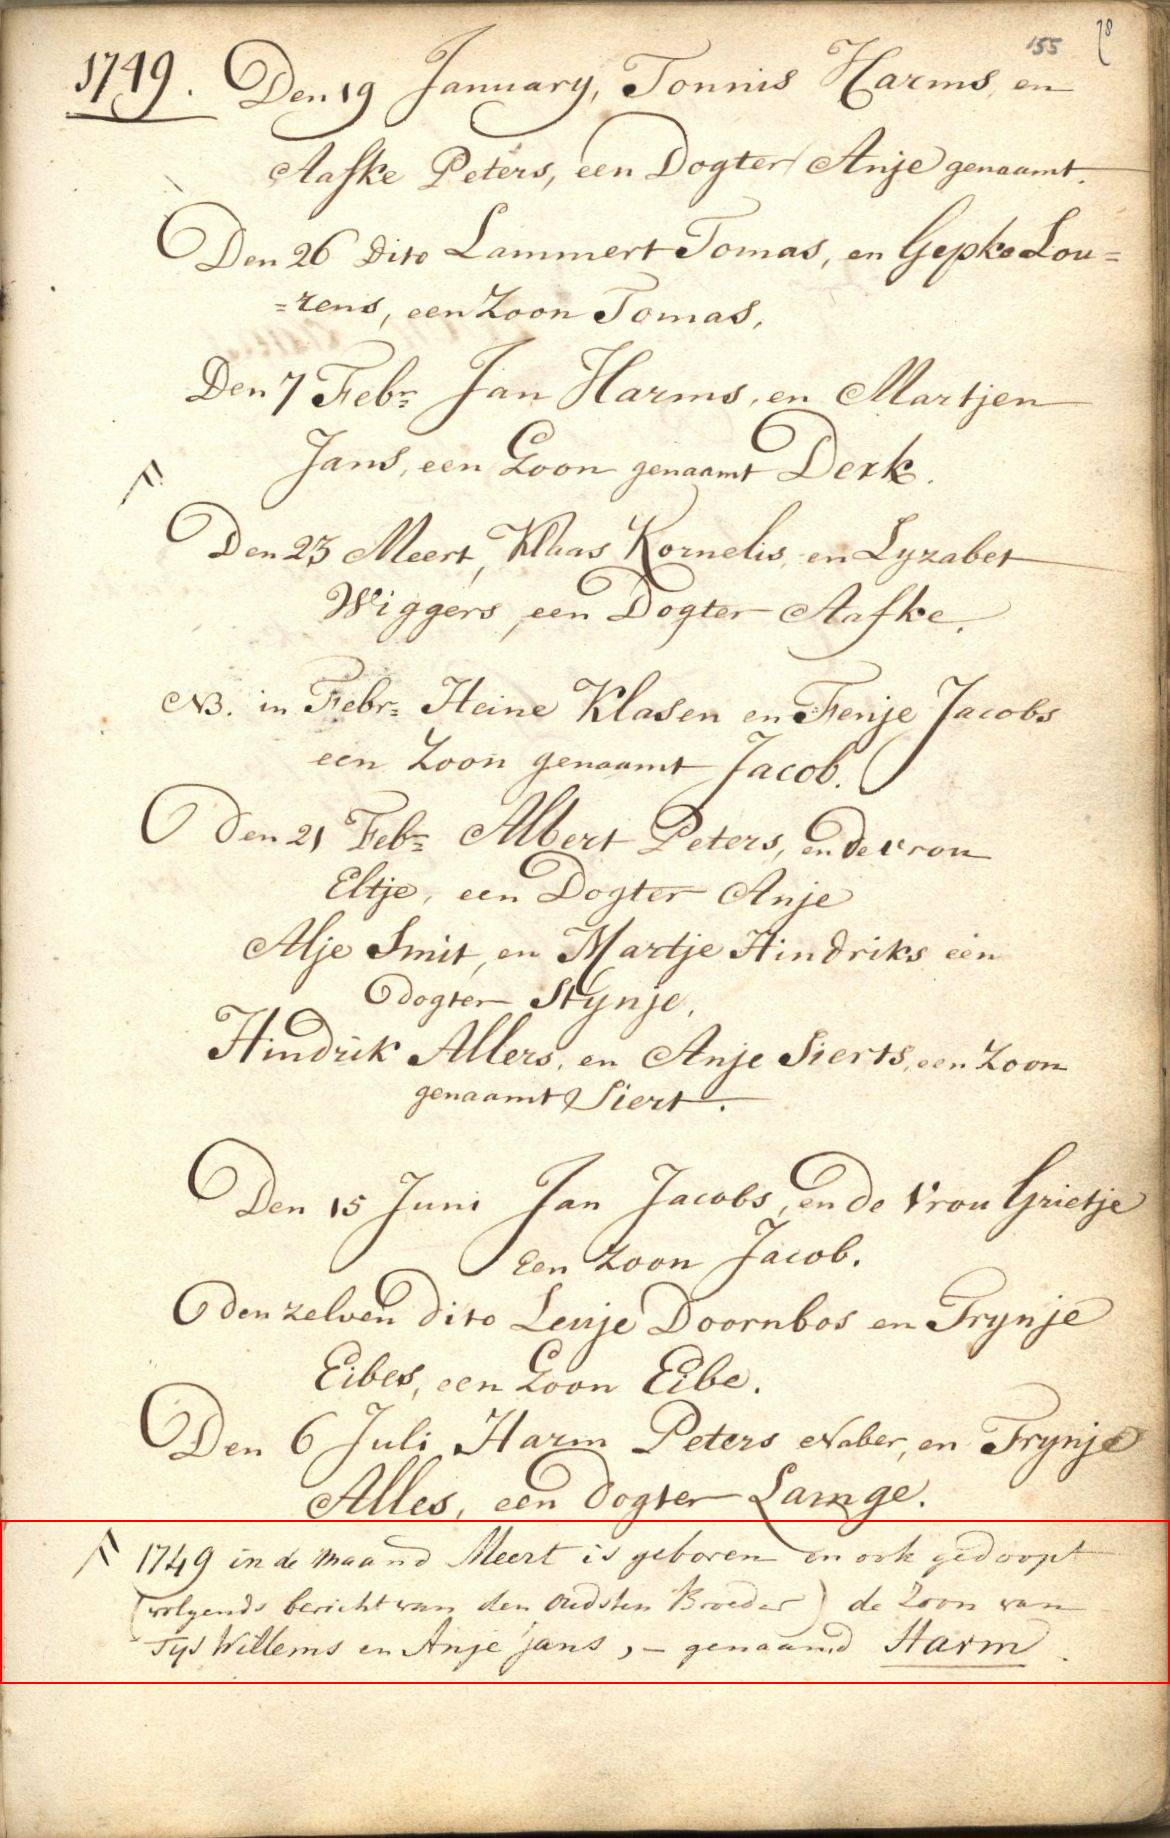 155 78
1749. Den 19 January, Tonnis Harms, en
Aafke Peters, een Dogter Anje genaamt.
Den 26 dito Lammert Tomas, en Gepke Lou=
=rens, een Zoon Tomas,
Den 7 Febr= Jan Harms, en Martjen
Jans, een Zoon genaamt Derk.
Den 23 Meert, Klaas Kornelis, en Lyzabet
Wiggers, een Dogter Aafke.
NB. in Febr= Heine Klasen en Fenje Jacobs
een Zoon genaamt Jacob.
Den 21 Febr= Albert Peters, en de vrou
Eltje, een Dogter Anje
Alje Smit, en Martje Hindriks een
dogter Stynje,
Hindrik Allers, en Anje Sierts, een Zoon
genaamt Siert.
Den 15 Juni Jan Jacobs, en de Vrou Grietje
Een Zoon Jacob.
den zelven dito Leuje Doornbos en Trynje
Eibes, een Zoon Eibe.
Den 6 Juli Harm Peters Naber, en Trynje
Alles, een dogter Lamge.
1749 in de maand Meert is geboren en ook gedoopt
(volgends bericht van den oudsten Broeder) de Zoon van
Tys Willems en Anje Jans, – genaamd Harm.